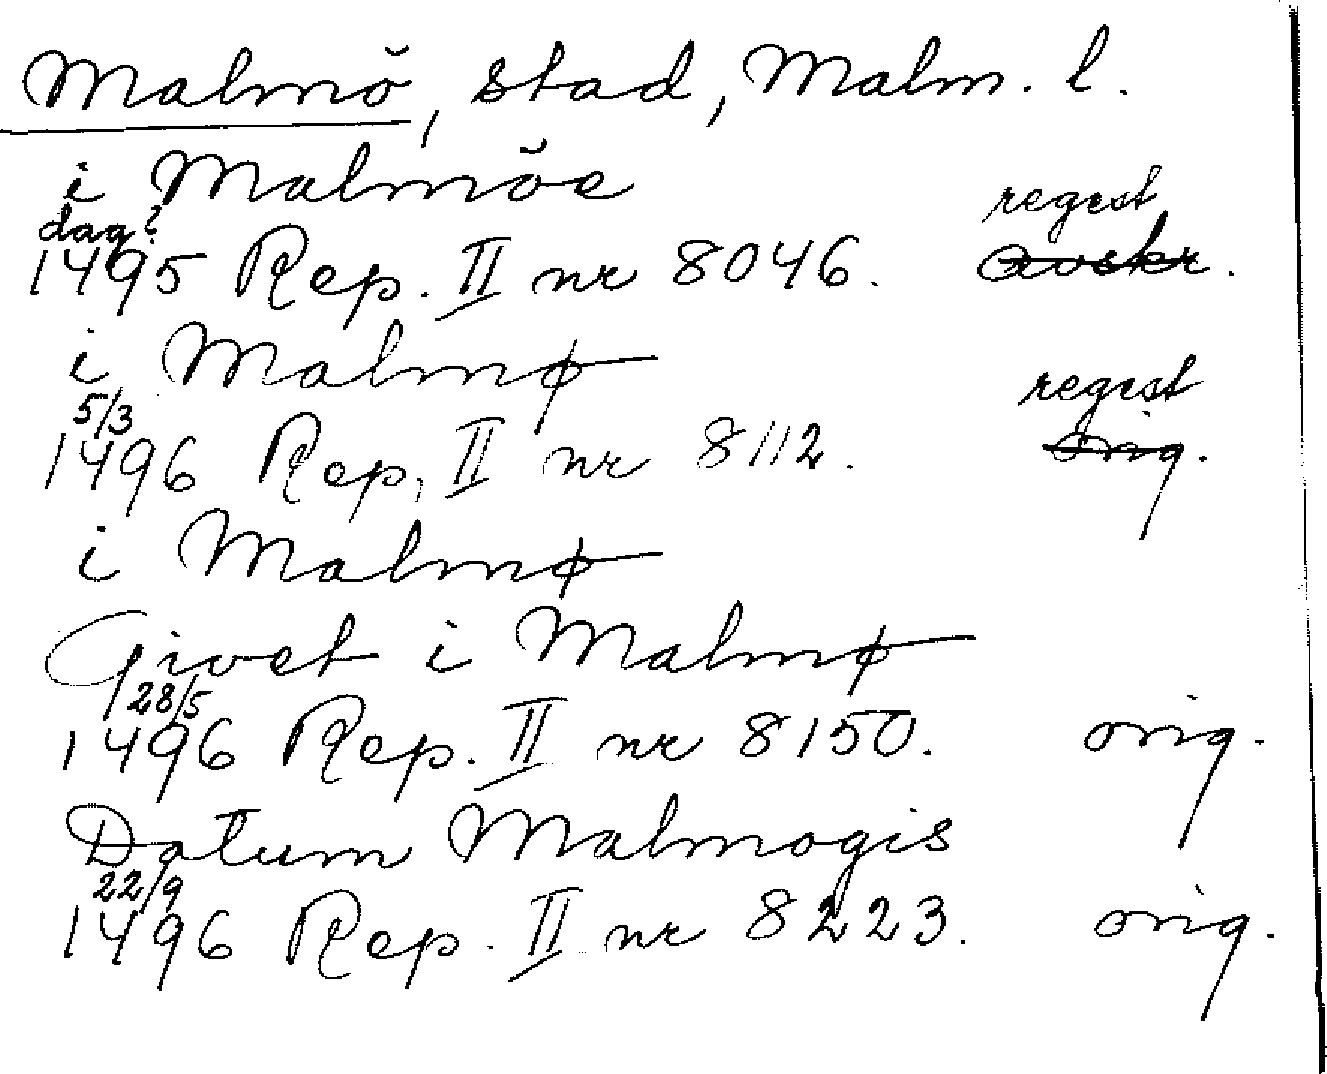 Malmö, stad, Malm. l.
i Malmöe
dag? regest
1495 Rep. II nr 8046. avskr.
i Malmø
5/3 regest
1496 Rep. II nr 8112. orig.
i Malmø
Givet i Malmø
28/5
1496 Rep. II nr 8150. orig.
Datum Malmogis
22/9
1496 Rep. II nr 8223. orig.